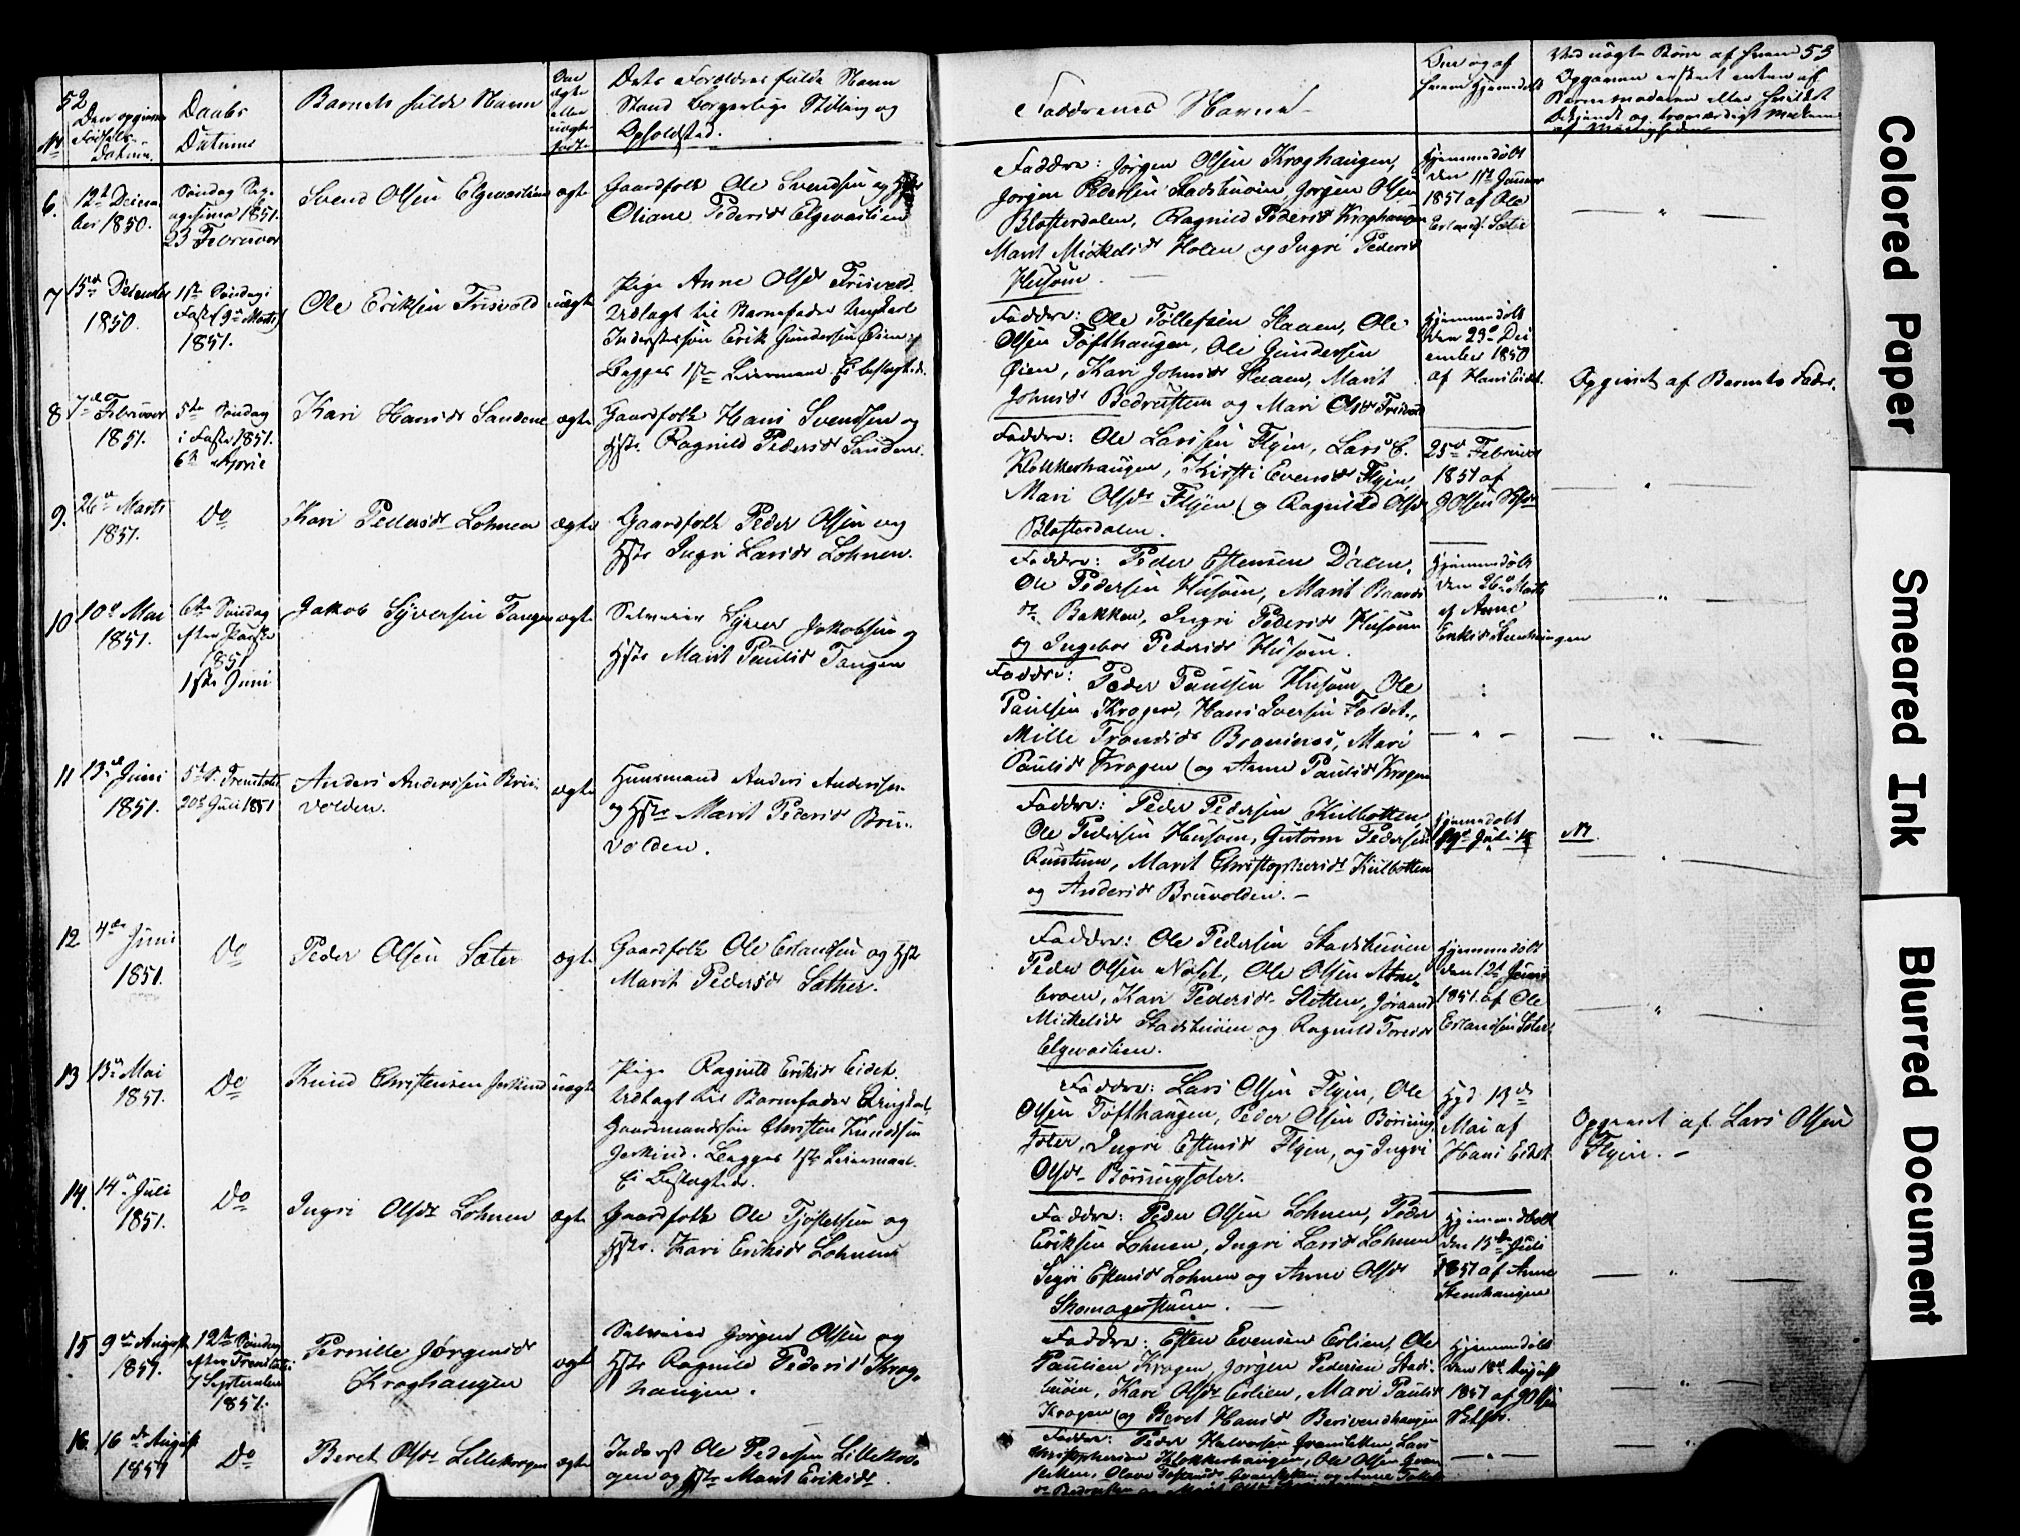 52
No
Den opgivne
Fødsels-
Datum.
Daabs
Datum
Barnets fulde Navn
Om
ægte
eller
uægte
født
Dets Forældres fulde Navn
Stand borgerlige Stilling og
Opholdsted.
6.
12te Decem
ber 1850.
Søndag Sexa
gesima 1851.
23 Februar
Svend Olsen Elgevaslien
ægte
Gaardfolk Ole Svendsen og Hstr
Oliane Pedersdr Elgevaslien
7
15de December
1850.
1ste Søndag i
Faste (9de Marts)
1851.
Ole Eriksen Trisvold
uægte
Pige Anne Olsdr Trisvold.
Udlagt til Barnefader Ungkarl
Inderstesøn Erik Gundersen Øien
Begges 1ste Leiermaal. Ei beslægtede.
8
7de Februar
1851.
5te Søndag
i Faste 1851.
6te April
Kari Hansdr Sandene
ægte
Gaardfolk Hans Svendsen og
Hstr. Ragnild Pedersdr Sandene.
9.
26de Marts
1851.
Do
Kari Pedersdr Lohnen
ægte
Gaardfolk Peder Olsen og
Hstr Ingri Larsdr Lohnen.
10
10de Mai
1851.
6te Søndag
efter Paaske
1851
1ste Juni
Jakob Syversen Tangen
ægte
Selveier Syver Jakobsen og
Hstr Marit Paulsdr Tangen
11
13de Juni
1851.
5te S. Trinitatis
20de Juli 1851
Anders Anderssen Bru-
volden.
ægte
Huusmand Anders Andersen
og Hstr Marit Pedersdr Bru-
volden.
12
4de Juni
1851.
Do
Peder Olsen Sæter
ægte
Gaardfolk Ole Erlandsen og Hstr
Marit Pedersdr Sæther.
13
13de Mai
1851.
Do
Knud Christensen Jerkind
uægte
Pige Ragnild Eriksdr Eidet.
Udlagt til Barnefader Ungkarl,
Gaardmandssøn Christen Knudsen
Jerkind. Begges 1ste Leiermaal.
Ei Beslægtede.
14.
14de Juli
1851.
Do
Ingri Olsdr Lohnen
ægte
Gaardfolk Ole Tjøstelsen og
Hstr. Kari Eriksdr Lohnen
15
9de August
1851.
12te Søndag
efter Trinitatis
7 September
1851.
Pernille Jørgensdr
Kroghaugen
ægte
Selveier Jørgen Olsen og
Hstr Ragnild Pedersdr Krog-
haugen.
16.
16de August
1851
Do
Beret Olsdr Lillekrogen
ægte
Inderst Ole Pedersen Lillekro-
gen og Hstr Marit Eriksdr.
Faddrenes Navne
Om og af
hvem hjemmedøbt
53
Ved uægte Børn af hvem
Opgaven er skeet enten af
Barnemoderen eller hvilket
bekjendt og troværdigt Medlem
af Menigheden
Faddre: Jørgen Olsen Kroghaugen,
Jørgen Pedersen Stadsbuøien, Jørgen Olsen
Blæsterdalen, Ragnild Pedersdr Kroghaugen
Marit Mikkelsdr Holen og Ingri Pedersdr
Husom.
Hjemmedøbt
den 11te Januar
1851 af Ole
Erlands. Sæter
Faddre: Ole Tollefsen Haaen, Ole
Olsen Tofthaugen, Ole Gundersen
Øien, Kari Johnsdr Haaen, Marit
Johnsdr Bedrusten og Mari Olsdr Trisvold
Hjemmedøbt
den 23de De
cember 1850
af Hans Eidet.
Opgivet af Barnets Fader.
Faddre: Ole Larssen Flyen, Lars C.
Klokkerhaugen, Kirsti Evensdr Flyen,
Mari Olsdr Flyen og Ragnild Olsdr
Blæsterdalen.
25de Februar
1851 af
J Olsen
Faddre: Peder Estensen Dalen,
Ole Pedersen Husom, Marit Baards
dr Bakken, Ingri Pedersdr Husom
og Ingebor Pedersdr Husom.
Hjemmedøbt
den 26de Marts
af Anne
Eriksdr Steenhaugen
Faddre: Peder Paulsen Husom, Ole
Paulsen Krogen, Hans Iversen Foldet,
Mille Trondsdr Branenes, Mari
Paulsdr Krogen og Anne Paulsdr Krogen
Faddre: Peder Pedersen Kulbotten,
Ole Pedersen Husom, Gutorm Pedersen
Ruustuen, Marit Christophersdr Kulbotten
og Andersdr Bruvolden.
Hjemmedøbt
19de Juli
Faddre: Ole Pedersen Stadsbuøien
Peder Olsen Næset, Ole Olsen Atne-
broen, Kari Pedersdr Sletten, Jøraand
Mickelsdr Stadsbuøien og Ragnild Toresdr
Elgevaslien.
Hjemmedøbt
den 12te Juni
1851. af Ole
Erlandsen Sæter
Faddre: Lars Olsen Flyen, Ole
Olsen Tofthaugen, Peder Olsen Børsung
sæter, Ingri Estensdr Flyen, og Ingri
Olsdr Børsungsæter.
Hjd. 13de
Mai af
Hans Eidet
Opgivet af Lars Olsen
Flyen.
Faddre: Peder Olsen Lohnen, Peder
Eriksen Lohnen, Ingri Larsdr Lohnen
Sigri Estensdr Lohnen og Anne Olsdr
Skomagerstuen.
Hjemmedøbt
den 15de Juli
1851 af Anne
Steenhaugen
Faddre: Esten Evensen Erlien, Ole
Paulsen Krogen, Jørgen Pedersen Stads-
buøien, Kari Olsdr Erlien, Mari Paulsdr
Krogen og Beret Hansdr Berivendhaugen
Hjemmedøbt
den 18de August
1851 af J Olsen
Faddre: Peder Halvorsen Gransletten, Lars
Christophersen Klokkerhaugen, Ole Olsen Gran
sletten, Olave
Colored Paper
Smeared Ink
Blurred Document